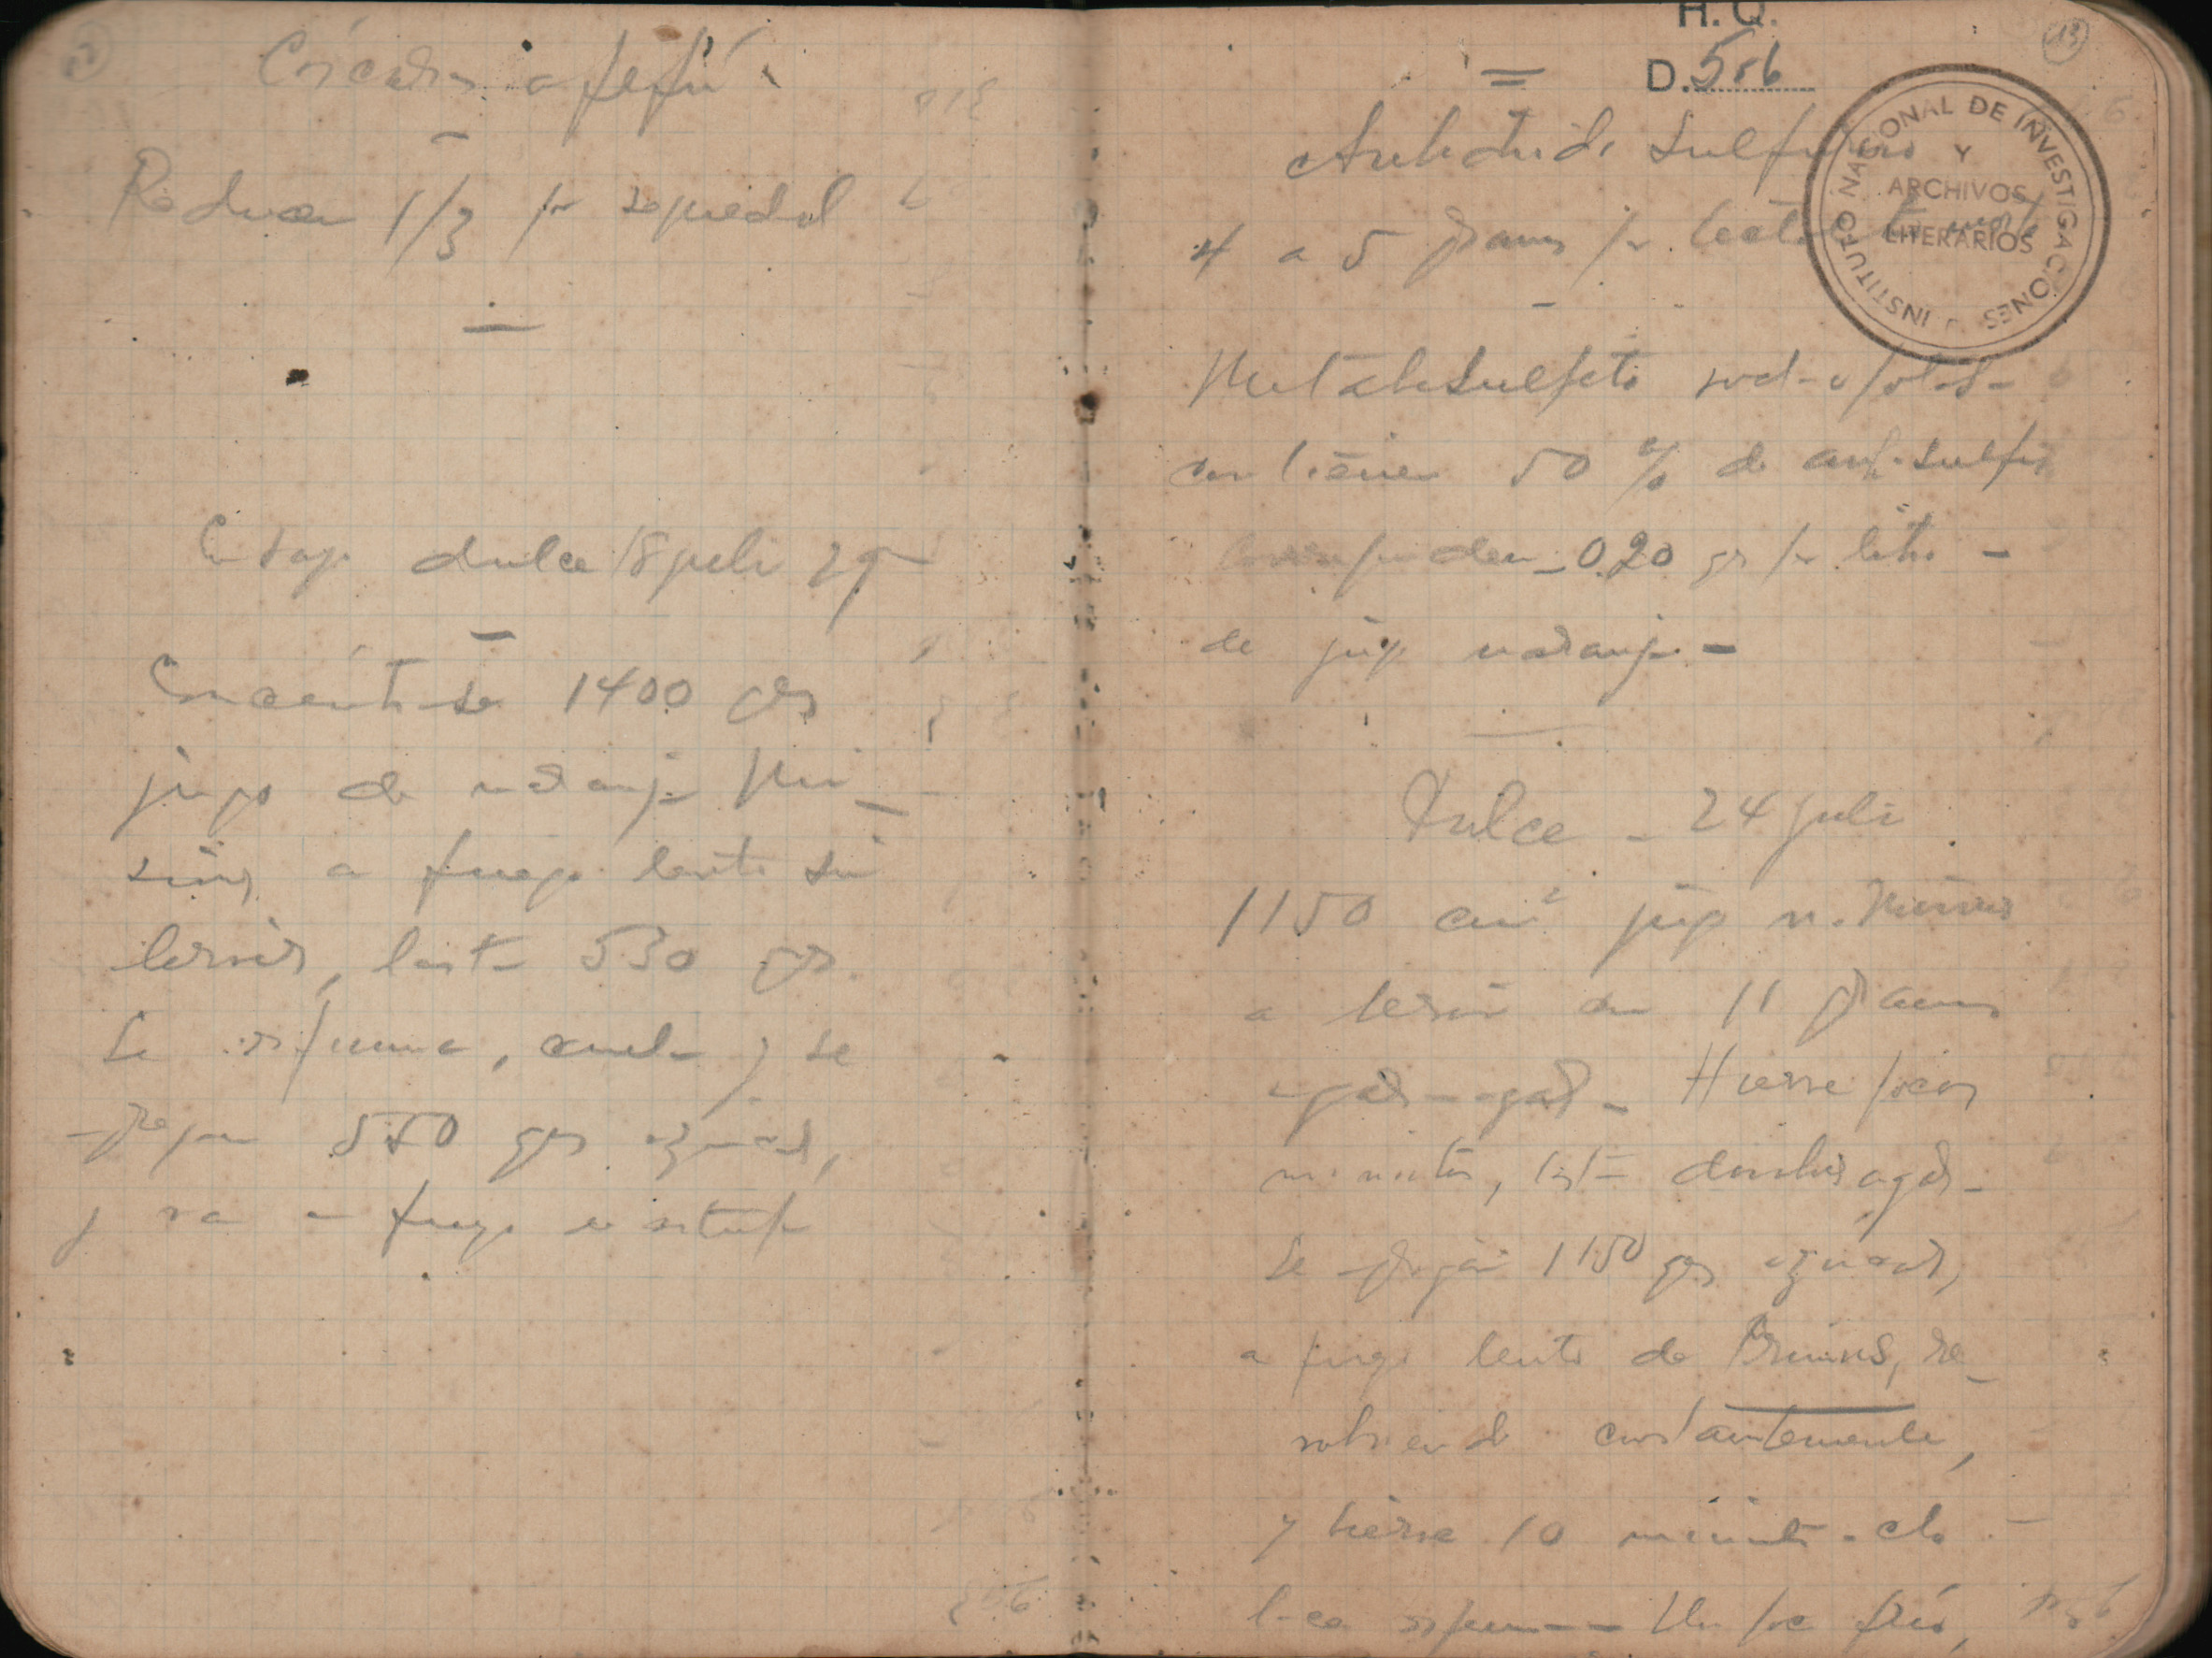 12
Reducen 1/3 pr sequedad
Ensayo dulce 18 julio 29
Concéntrase 1400 grs
jugo de naranja Mi-
siones a fuego lento sin
hervir, hasta 530 grs.
Se espuma, cuela y se
agregan 550 grs azúcar,
y va a fuego
13
H.Q.
D. 506
INSTITUTO NACIONAL DE INVESTIGACIONES
Y
ARCHIVOS
LITERARIOS
Anhidrido sulfuroso
4 a 5 gramos pr hectol.
Metabisulfito sod- o potas-
contienen 50 % de anh. sulfur
Corresponden - 0.20 gr pr litro -
de jugo naranja -
Dulce - 24 julio
1150 cm³ jugo n. Misiones
a hervir con 11 gramos
agar-agar - Hierve pocos
minutos, hasta disolver agar-
Se agregan 1150 grs azúcar,
a fuego lento de Primus, re-
volviendo constantemente,
y hierve 10 minutos
espuma - Un poc frío,